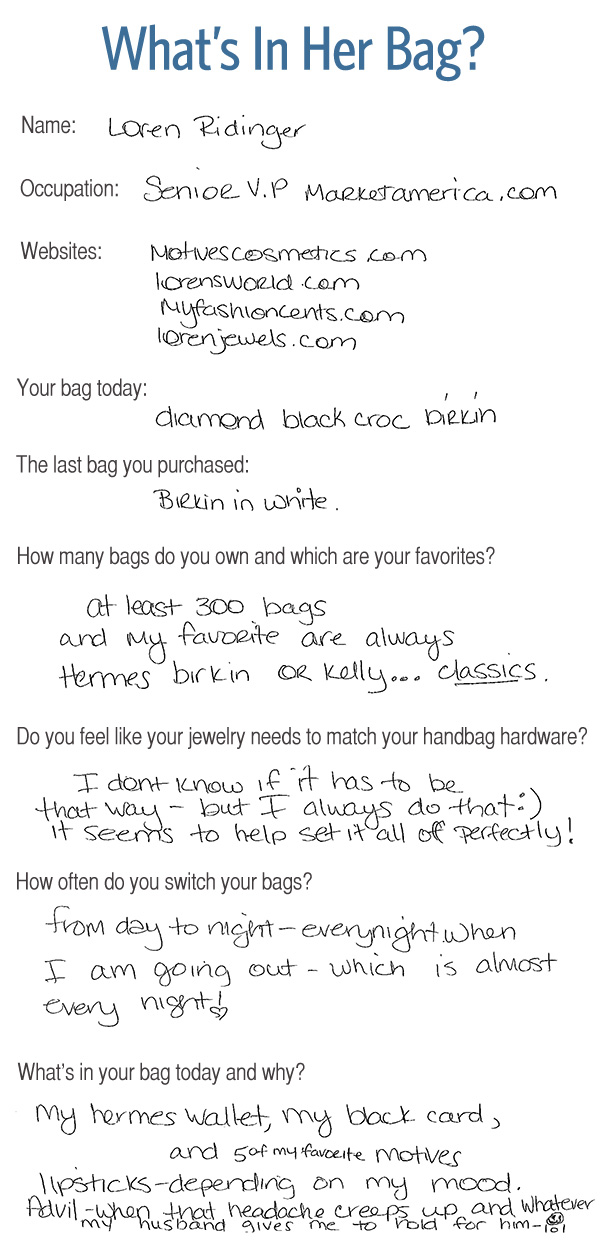 What's In Her Bag?
Name: Loren Ridinger
Occupation: Senior V.P Marketamerica.com
Websites: Motivescosmetics.com
lorensworld.com
Myfashioncents.com
lorenjewels.com
Your bag today:
diamond black croc birkin
The last bag you purchased:
Birkin in white.
How many bags do you own and which are your favorites?
at least 300 bags
and my favorite are always
Hermes birkin OR Kelly... classics.
Do you feel like your jewelry needs to match your handbag hardware?
I dont know if it has to be
that way - but I always do that :)
it seems to help set it all of perfectly!
How often do you switch your bags?
from day to night - everynight when
I am going out - which is almost
every night!
What's in your bag today and why?
My hermes wallet, my black card,
and 5 of my favorite motives
lipsticks - depending on my mood.
Advil - when that headache creeps up and whatever
my husband gives me to hold for him - lol